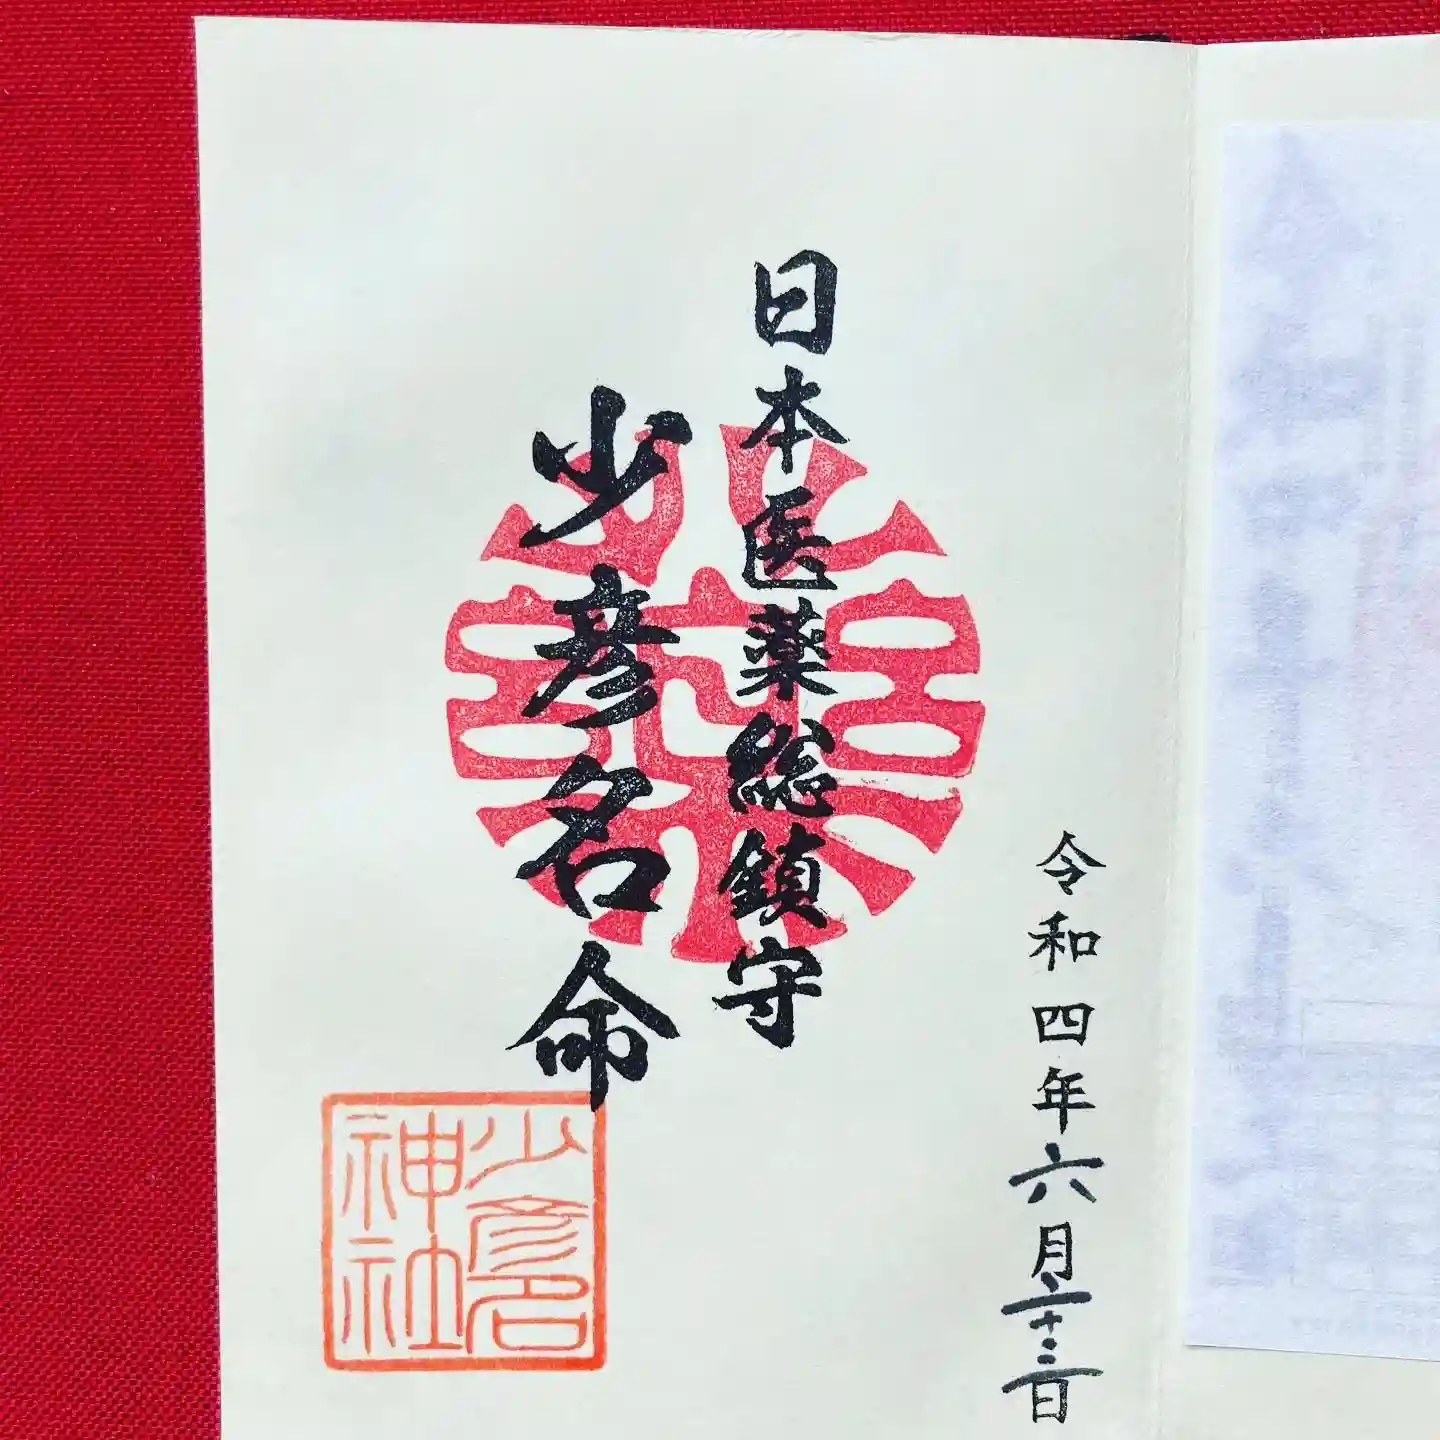 令和四年六月二十三日
日本医薬総鎮守
少彦名命
少彦名
神社